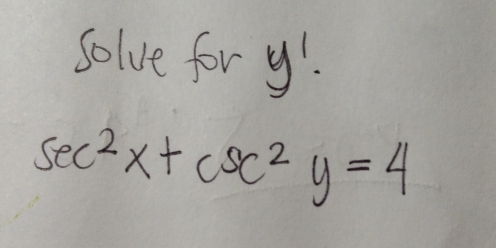 Solve for y'.
sec²x + csc² y = 4